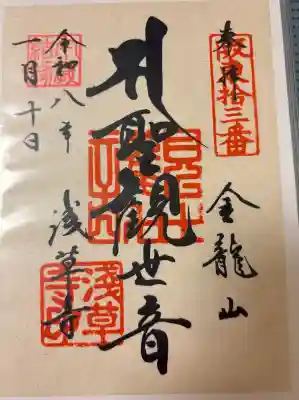 坂東拾三番
奉拝
金龍山
聖観世音
浅草寺
浅草寺
令和八年
月十日